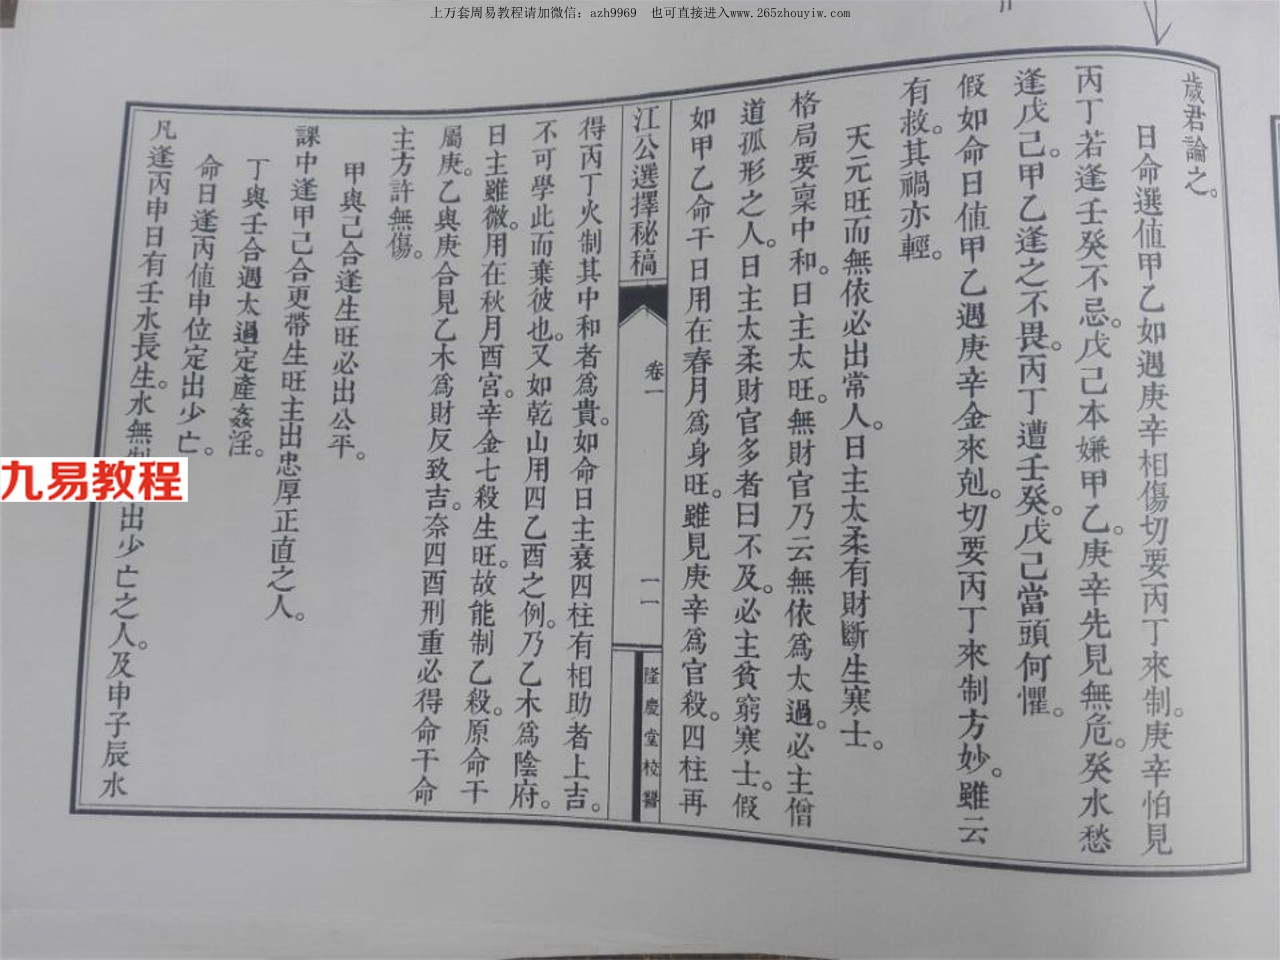 上万套周易教程请加微信：azh9969　也可直接进入www.265zhouyiw.com
歲君論之。
日命選值甲乙如遇庚辛相傷切要丙丁來制。庚辛怕見
丙丁若逢壬癸不忌。戊己本嫌甲乙。庚辛先見無危。癸水愁
逢戊己。甲乙逢之不畏。丙丁遭壬癸。戊己當頭何懼。
假如命日值甲乙遇庚辛金來剋。切要丙丁來制方妙。雖云
有救。其禍亦輕。
天元旺而無依必出常人。日主太柔有財斷生寒士。
格局要稟中和。日主太旺。無財官乃云無依爲太過。必主僧
道孤形之人。日主太柔財官多者曰不及。必主貧窮寒士。假
如甲乙命干日用在春月爲身旺。雖見庚辛爲官殺。四柱再
江公選擇秘稿
卷一
一一
隆慶堂校
得丙丁火制其中和者爲貴。如命日主衰四柱有相助者上吉。
不可學此而棄彼也。又如乾山用四乙酉之例。乃乙木爲陰府。
日主雖微。用在秋月酉宮。辛金七殺生旺。故能制乙殺。原命干
屬庚。乙與庚合見乙木爲財反致吉。奈四酉刑重必得命干命
主方許無傷。
甲與己合逢生旺必出公平。
課中逢甲己合更帶生旺主出忠厚正直之人。
丁與壬合遇太過定產姦淫。
命日逢丙值申位定出少亡。
凡逢丙申日有壬水長生。水無出少亡之人。及申子辰水
九易教程